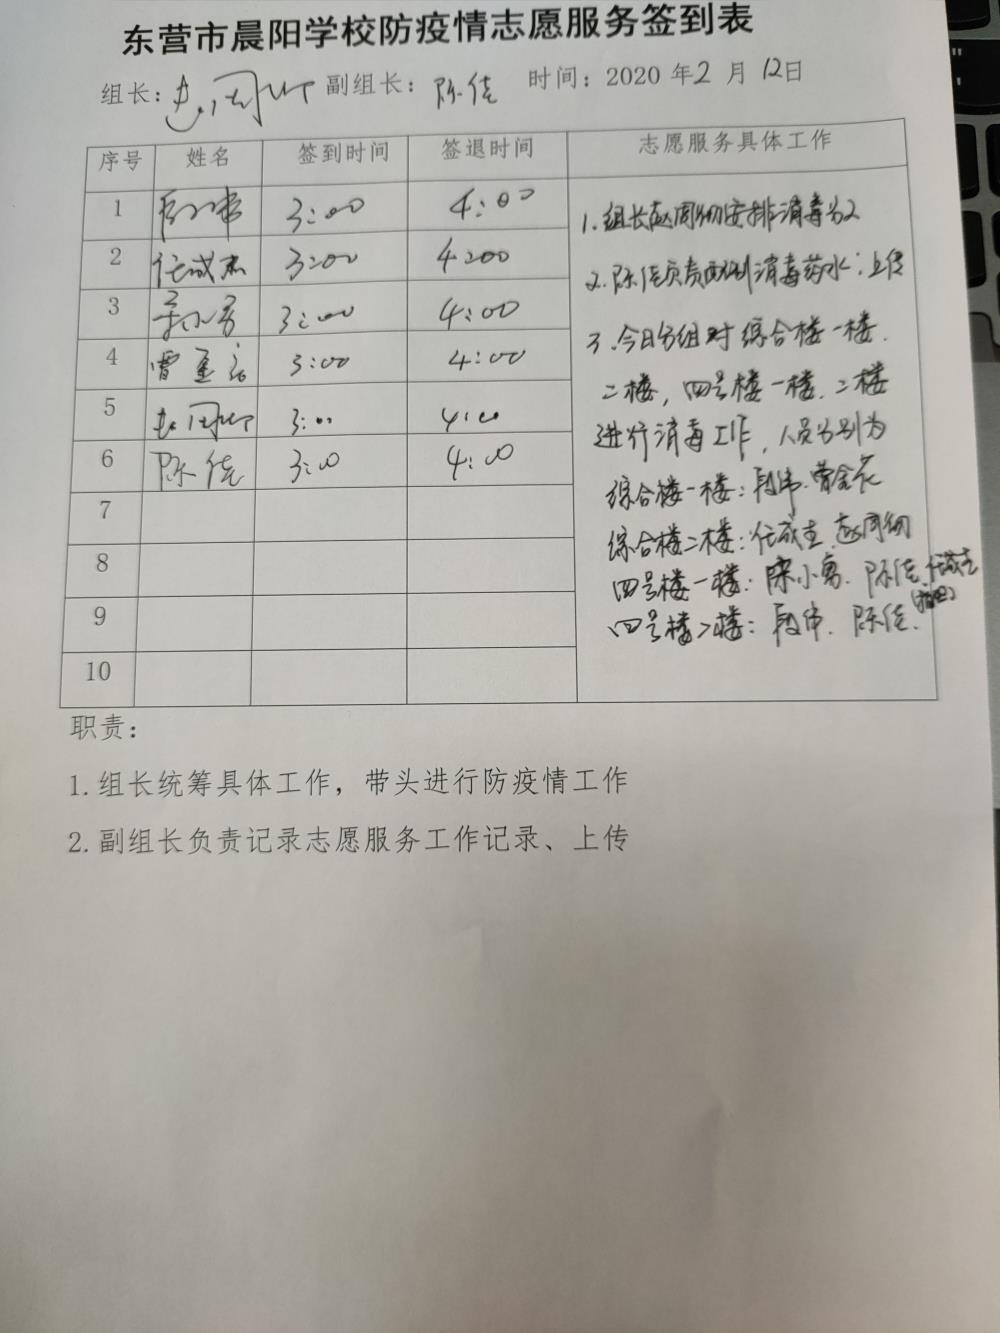 东营市晨阳学校防疫情志愿服务签到表
组长: 赵周 副组长: 陈佳 时间: 2020年2月12日
序号 姓名 签到时间 签退时间 志愿服务具体工作
1 段伟 3:00 4:00
2 任成杰 3:00 4:00
3 小勇 3:00 4:00
4 曹金 3:00 4:00
5 赵周 3:00 4:00
6 陈佳 3:00 4:00
7
8
9
10
1.组长赵周安排消毒分工
2.陈佳负责配制消毒药水;上传
3.今日分组对综合楼一楼.
二楼,四号楼一楼.二楼
进行消毒工作,人员分别为
综合楼一楼:段伟.曹金花
综合楼二楼:任成杰.赵周
四号楼一楼:宋小勇.陈佳.任成杰
四号楼二楼:段伟.陈佳.
职责:
1.组长统筹具体工作,带头进行防疫情工作
2.副组长负责记录志愿服务工作记录、上传